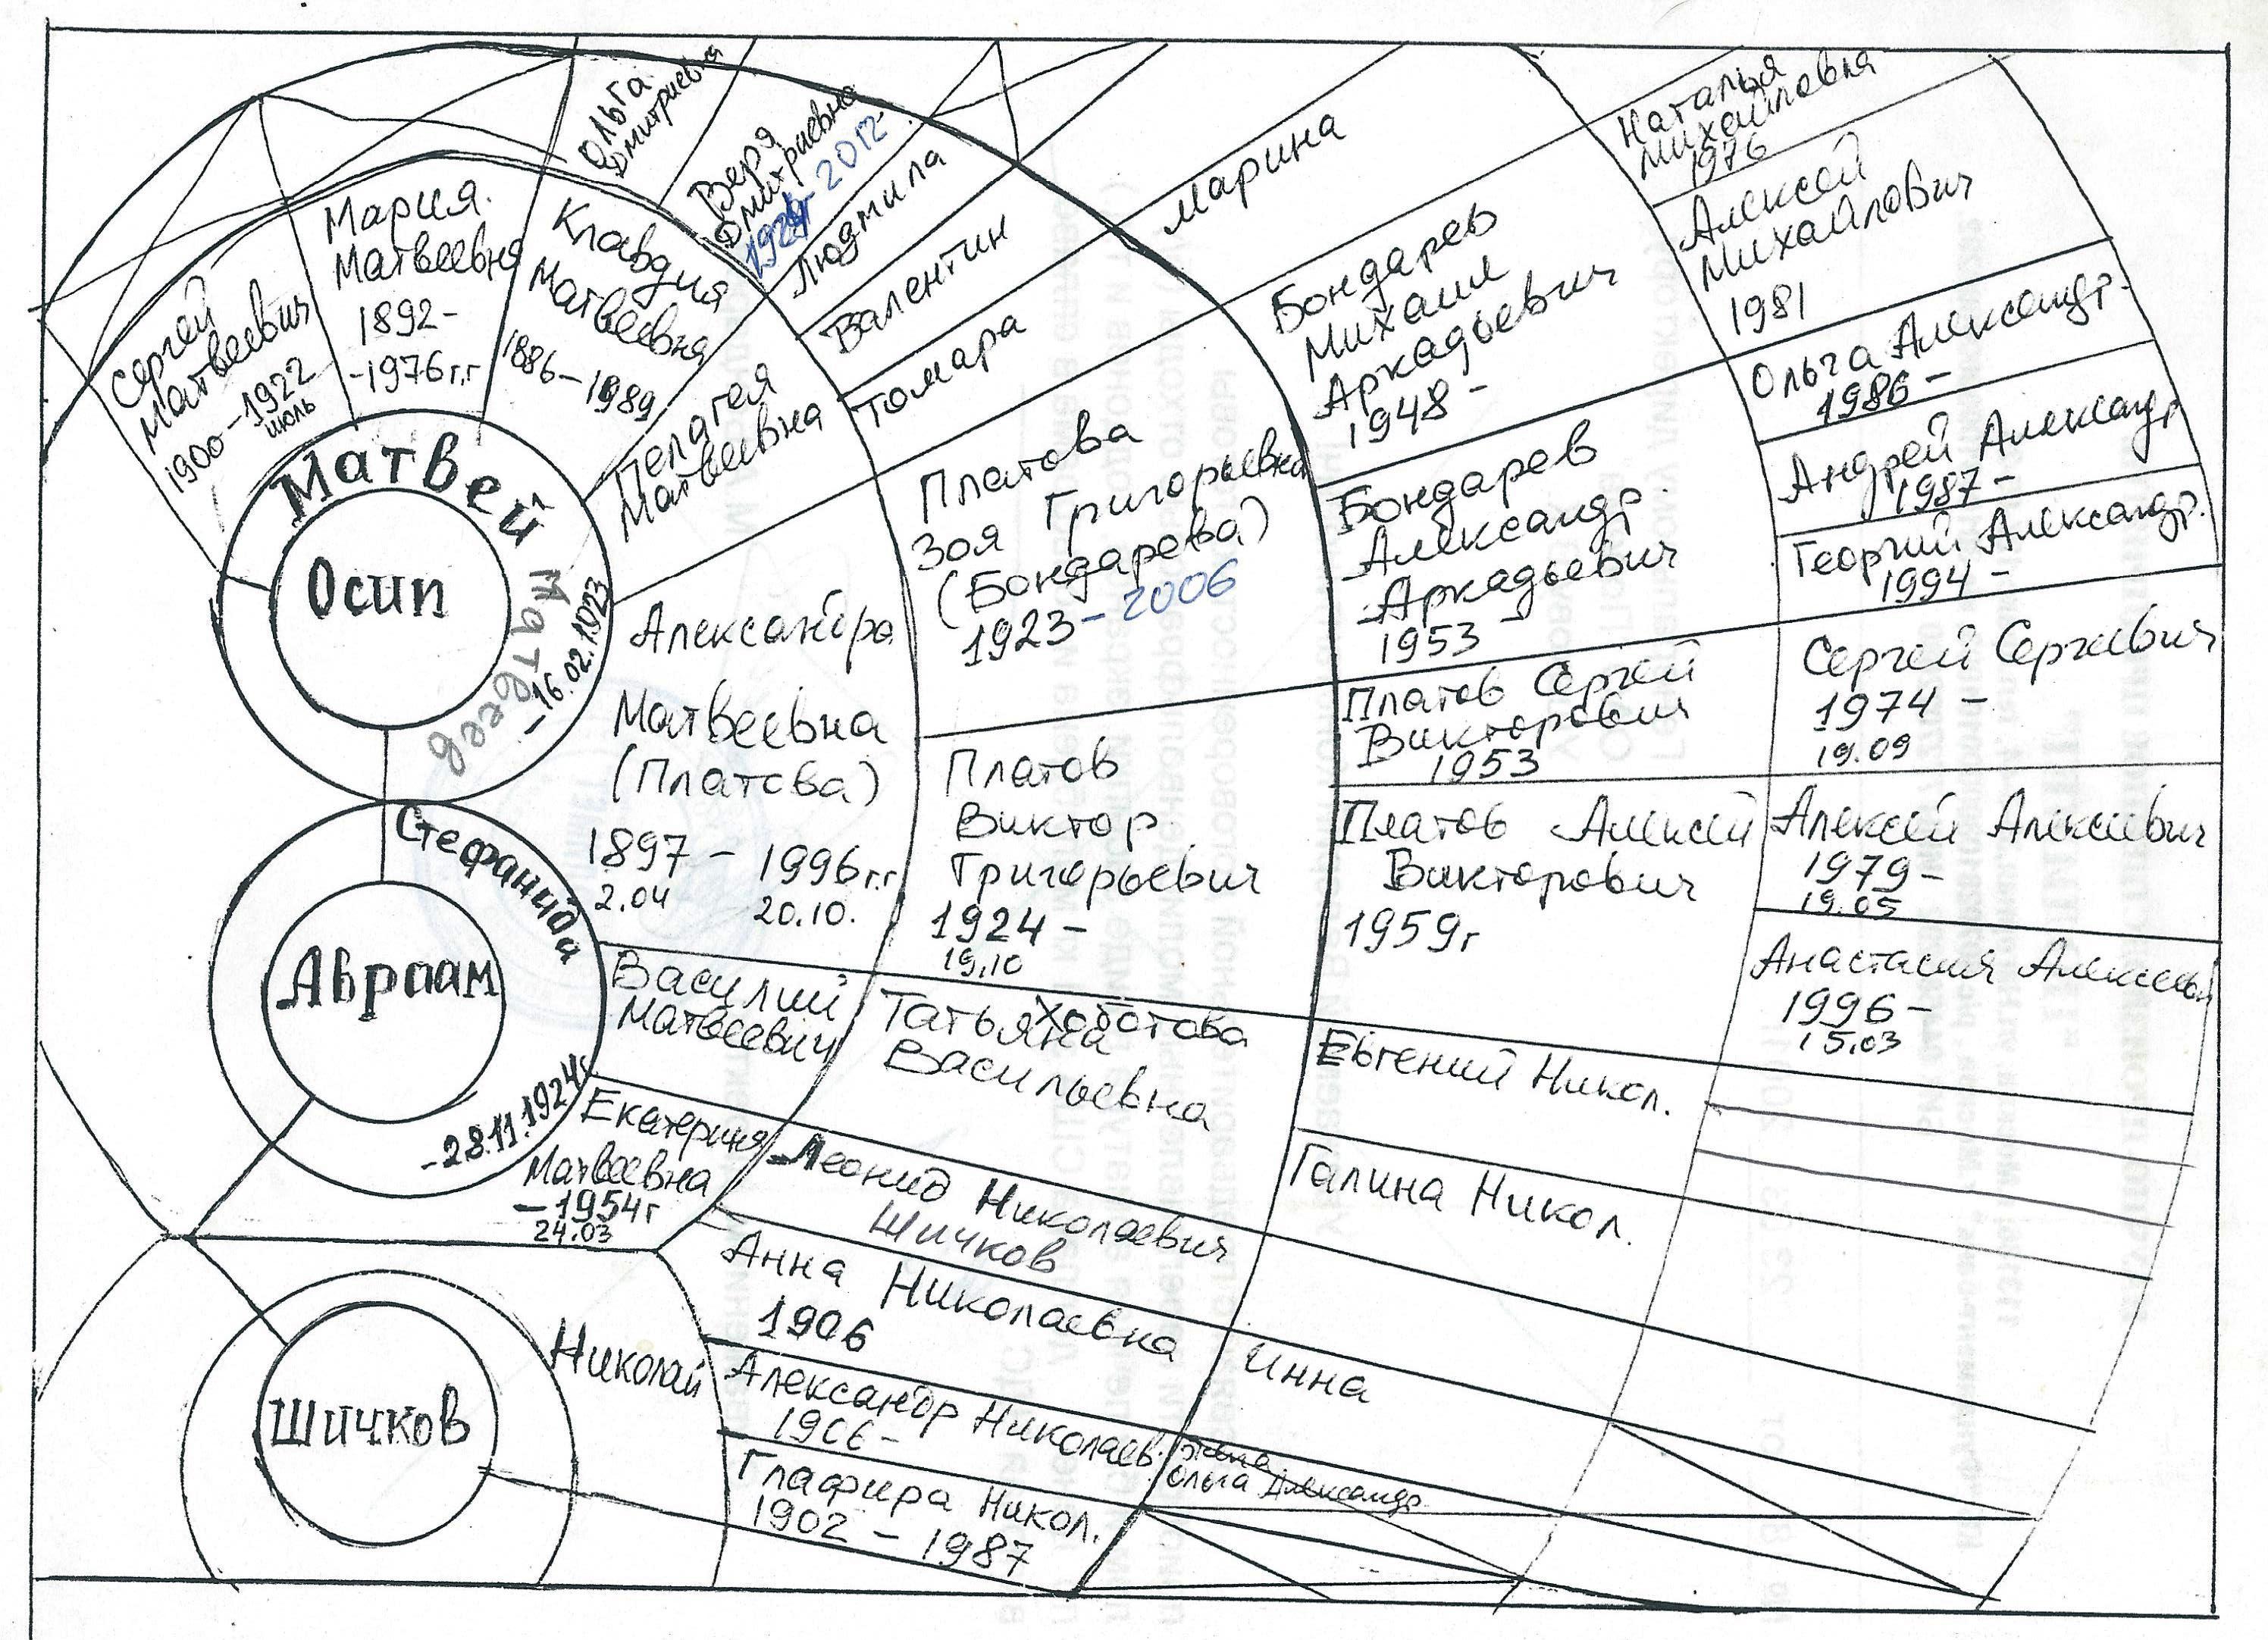 Ольга
Дмитриевна
Вера
Дмитриевна
1924-2012
Людмила
Валентин
Томара
Марина
Наталья
Михайловна
1976
Алексей
Михайлович
1981
Сергей
Матвеевич
1900-1922
июль
Мария.
Матвеевна
1892-
-1976г.г
Клавдия
Матвеевна
1886-1989
Пелагея
Матвеевна
Бондарев
Михаил
Аркадьевич
1948-
Ольга Александр.
1986-
Андрей Александр
1987-
Георгий Александр.
1994-
Матвей
Матвеев
-16.02.1923
Осип
Александра
Матвеевна
(Платова)
1897 - 1996г.г
2.04 20.10.
Платова
Зоя Григорьевна
(Бондарева)
1923-2006
Бондарев
Александр.
Аркадьевич
1953-
Платов Сергей
Викторович
1953
Сергей Сергеевич
1974 -
19.09
Платов
Виктор
Григорьевич
1924 -
19.10
Платов Алексей
Викторович
1959г
Алексей Алексеевич
1979-
19.05
Анастасия
1996-
15.03
Стефанида
Авраам
-28.11.1924г.
Василий
Матвеевич
Татьяна Хоботова
Васильевна
Евгений Никол.
Галина Никол.
Екатерина
Матвеевна
-1954г
24.03
Леонид Николаевич
Шичков
Анна Николаевна
1906
Инна
Николай
Шичков
Александр Николаев.
1906-
жена
Ольга Александр.
Глафира Никол.
1902 - 1987